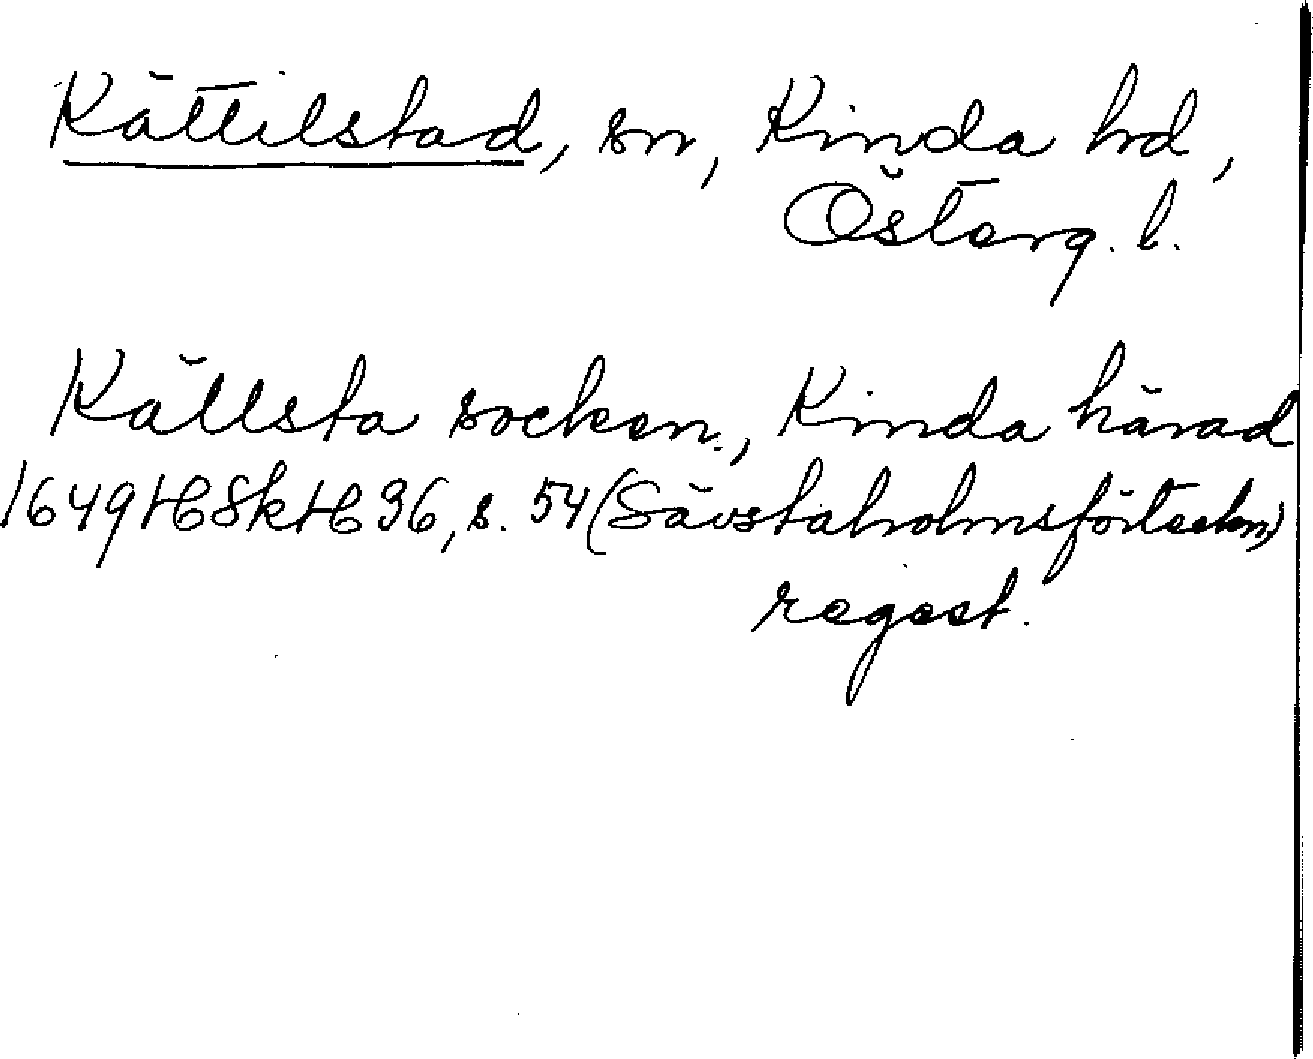 Kättilstad, sn, Kinda hd,
Österg. l.
Källsta socken., Kinda härad
1649 HSkH 36, s. 54 (Sävstaholmsförteckn)
regest.